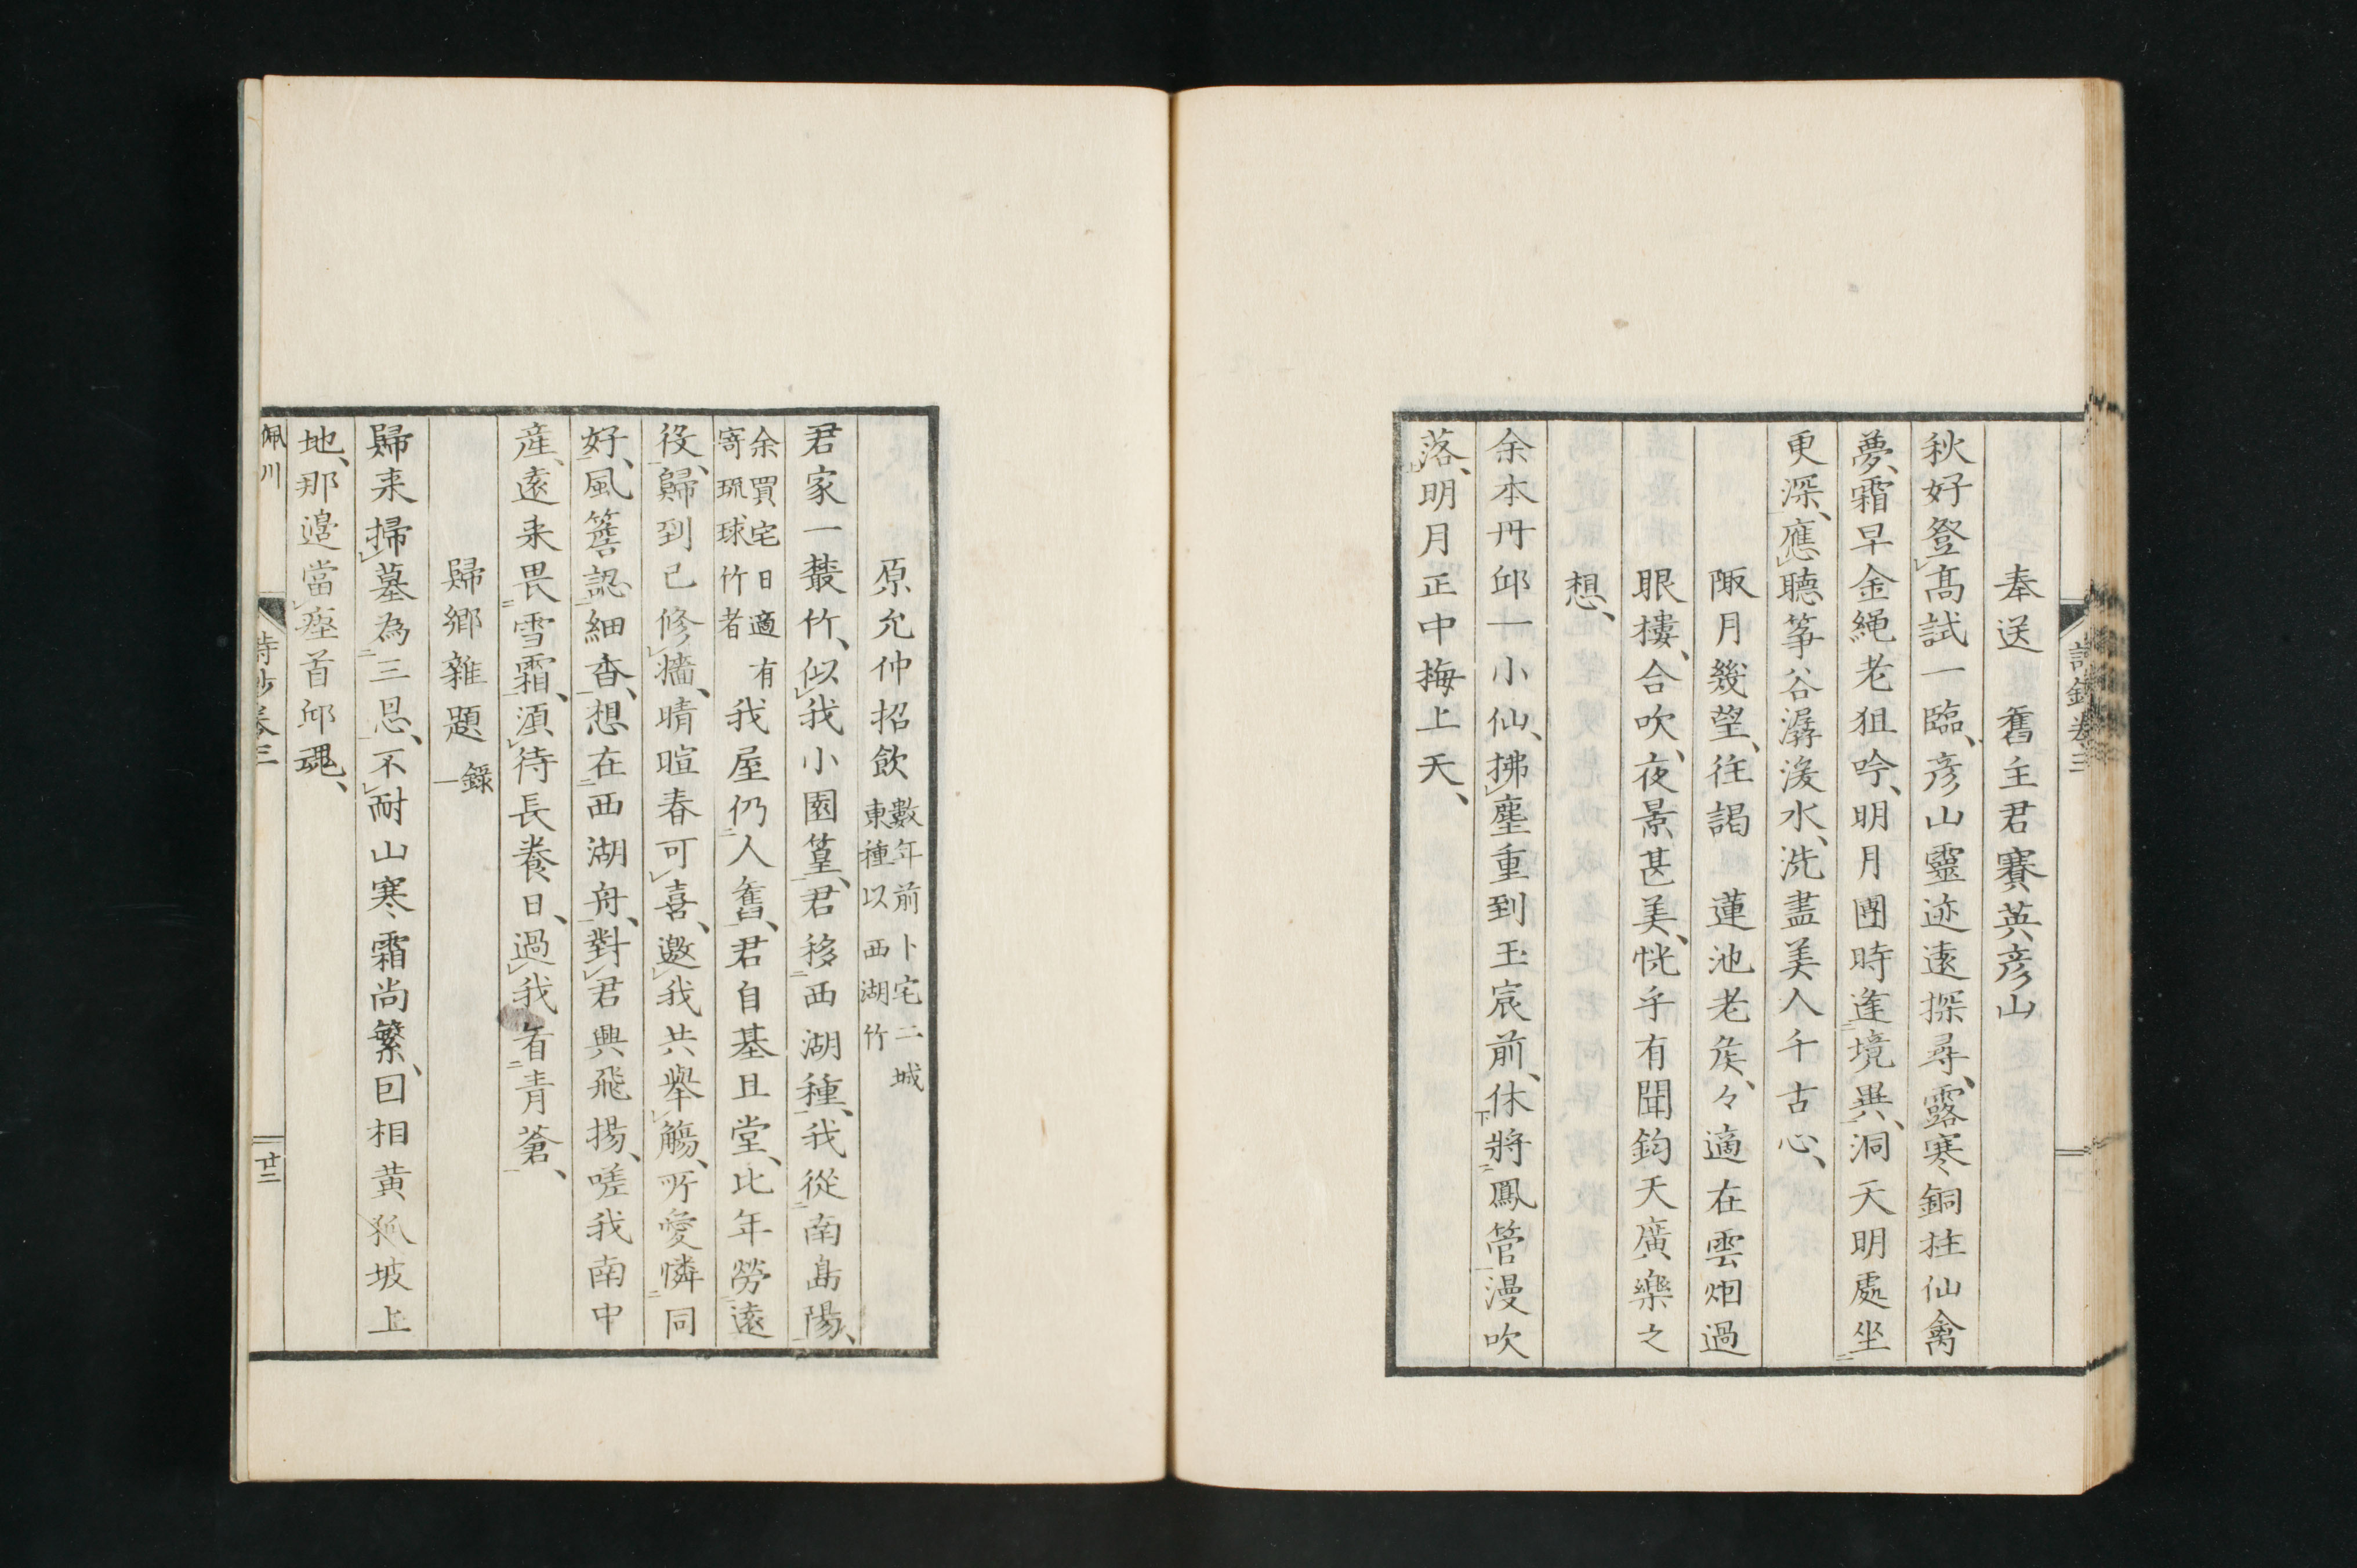 奉送　舊主君賽英彦山
秋好登髙試一臨、彦山靈迹遠探尋、露寒銅柱仙禽
夢、霜早金繩老狙吟、明月團時逢境異、洞天明處坐
更深、應聴筝谷潺湲水、洗盡美人千古心、
陬月幾望、往謁　蓮池老矦、々適在雲烟過
眼樓、合吹、夜景甚美、恍乎有聞鈞天廣樂之
想、
余本丹邱一小仙、拂塵重到玉宸前、休將鳳管漫吹
落、明月正中梅上天、
原允仲招飲 數年前卜宅二城
東種以西湖竹
君家一叢竹、似我小園篁、君移西湖種、我從南島陽、
余買宅日適有
寄琉球竹者
我屋仍人舊、君自基且堂、比年勞遠
役、歸到已修墻、晴暄春可喜、邀我共舉觴、所愛憐同
好、風簷認細香、想在西湖舟、對君興飛揚、嗟我南中
産、遠来畏雪霜、須待長養日、過我看青蒼、
歸鄉雜題 錄一
歸来掃墓為三思、不耐山寒霜尚繁、回相黄狐坡上
地、那邉當瘞首邱魂、
佩川
詩鈔卷三
廿二